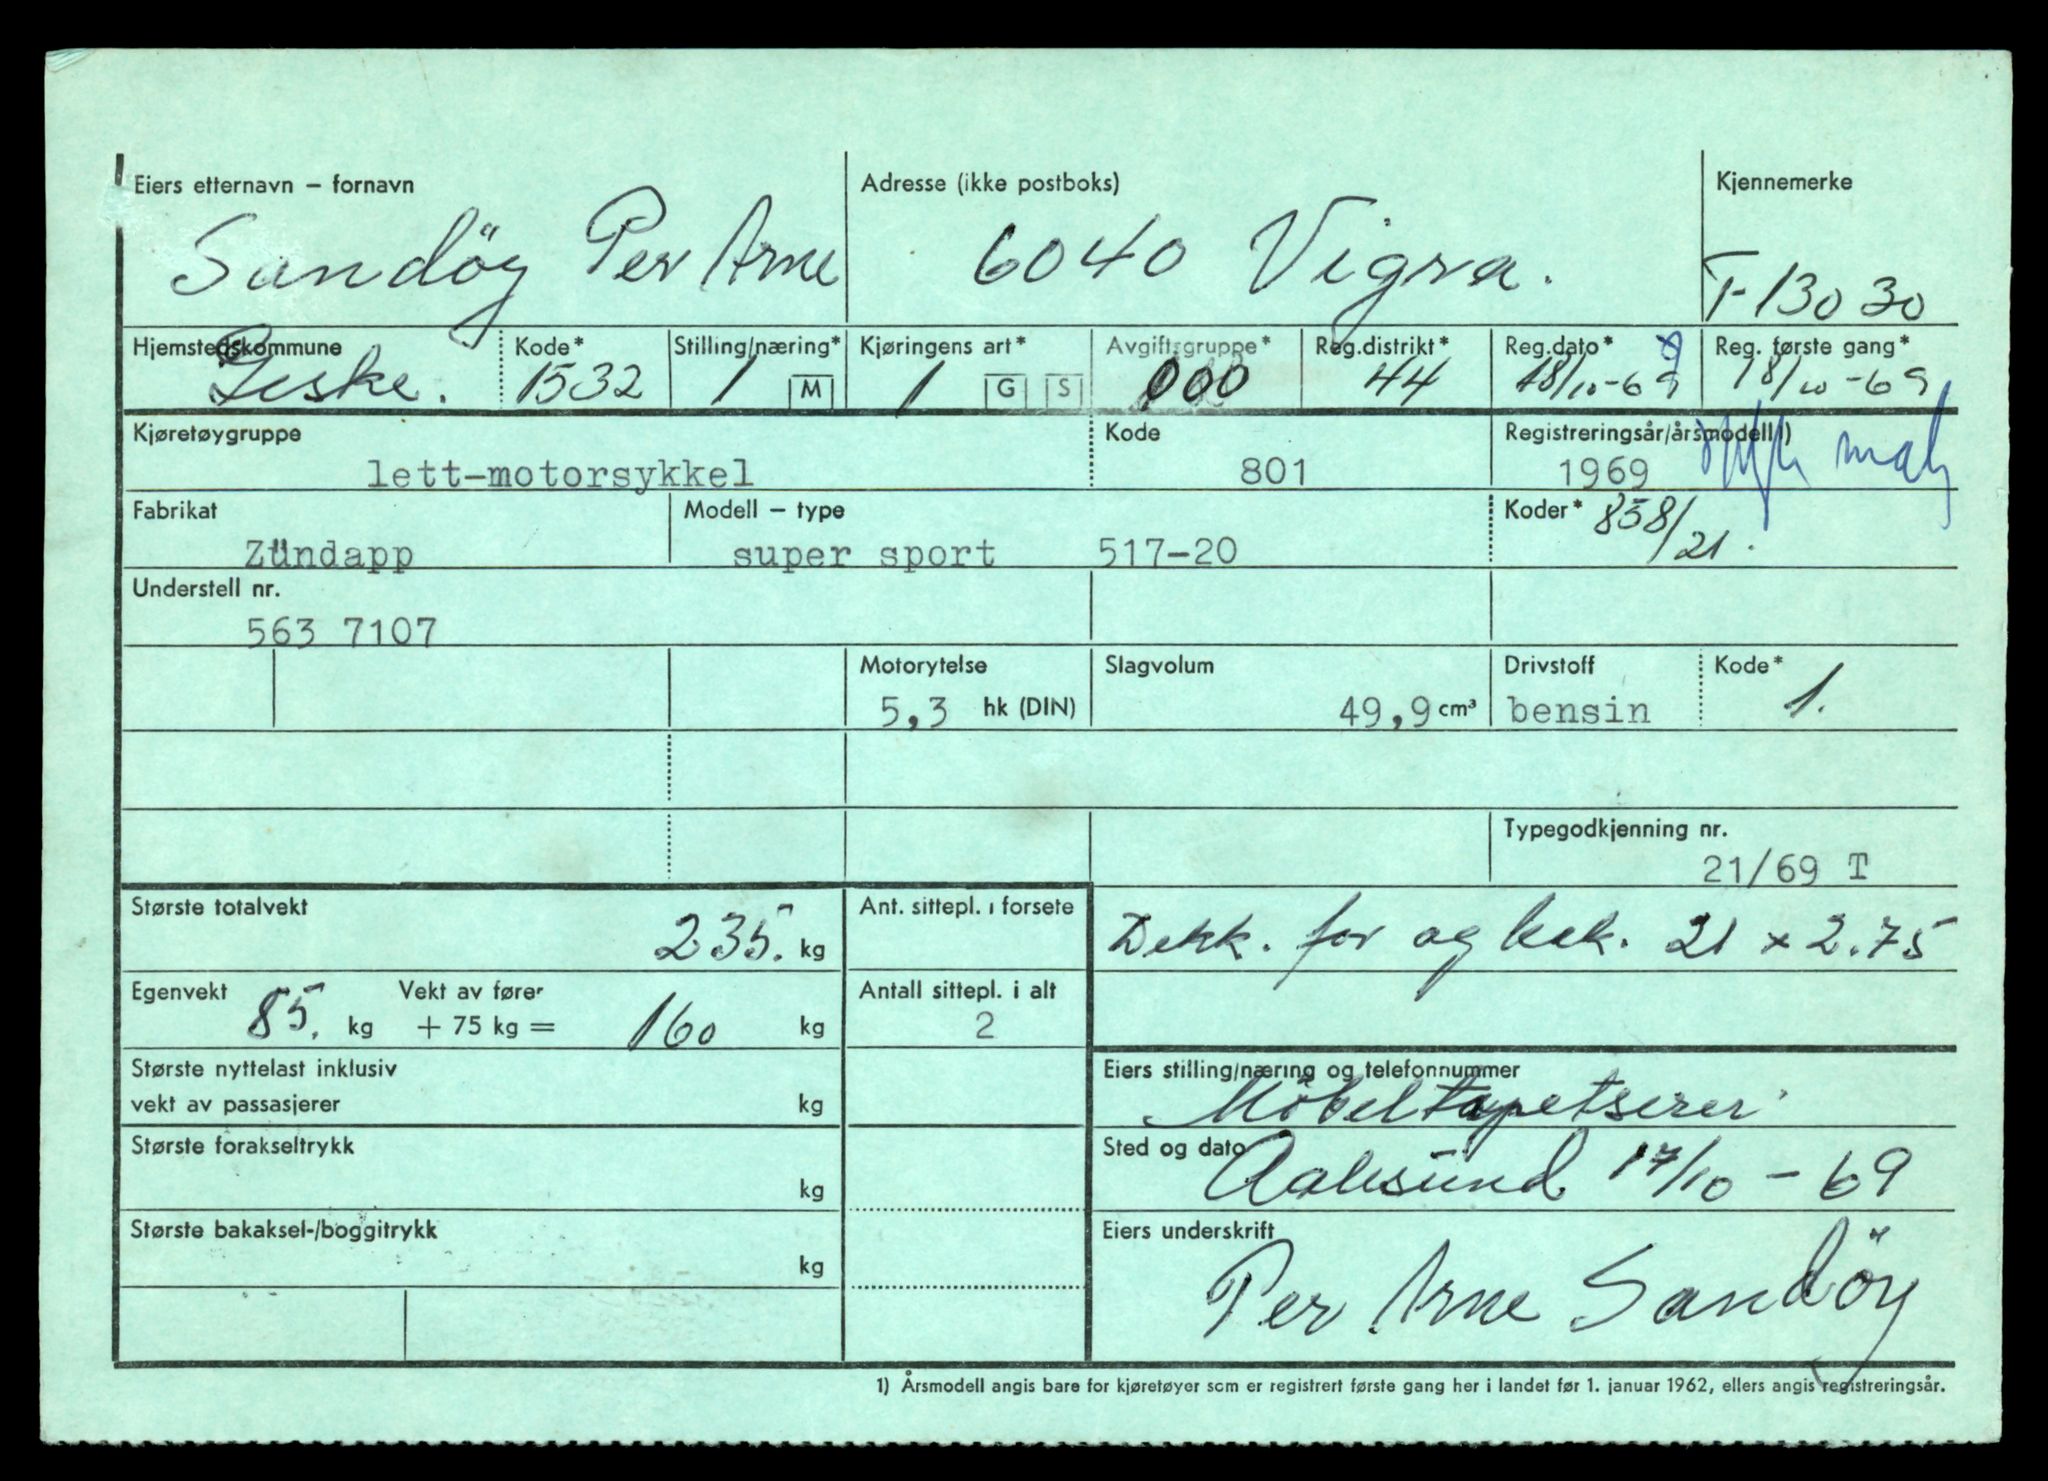 Eiers etternavn – fornavn Adresse (ikke postboks) Kjennemerke
Sandöy Per Arne 6040 Vigra. T-13030
Hjemstedskommune Kode* Stilling/næring* Kjøringens art* Avgiftsgruppe* Reg.distrikt* Reg.dato* Reg. første gang*
Giske. 1532 1 M 1 G S 000 44 18/10-69 18/10-69
Kjøretøygruppe Kode Registreringsår/årsmodell 1)
lett-motorsykkel 801 1969
Fabrikat Modell – type Koder* 858/21.
Zündapp super sport 517-20
Understell nr.
563 7107
Motorytelse Slagvolum Drivstoff Kode*
5,3 hk (DIN) 49,9 cm³ bensin 1.
Typegodkjenning nr.
21/69 T
Største totalvekt 235. kg Ant. sittepl. i forsete Dekk. for og bak. 21 x 2.75
Egenvekt Vekt av fører Antall sittepl. i alt
85. kg + 75 kg = 160 kg 2
Største nyttelast inklusiv Eiers stilling/næring og telefonnummer
vekt av passasjerer kg Möbeltapetserer
Største forakseltrykk kg Sted og dato Aalesund 17/10-69
Største bakaksel-/boggitrykk kg Eiers underskrift
Per Arne Sandöy
1) Årsmodell angis bare for kjøretøyer som er registrert første gang her i landet før 1. januar 1962, ellers angis registreringsår.